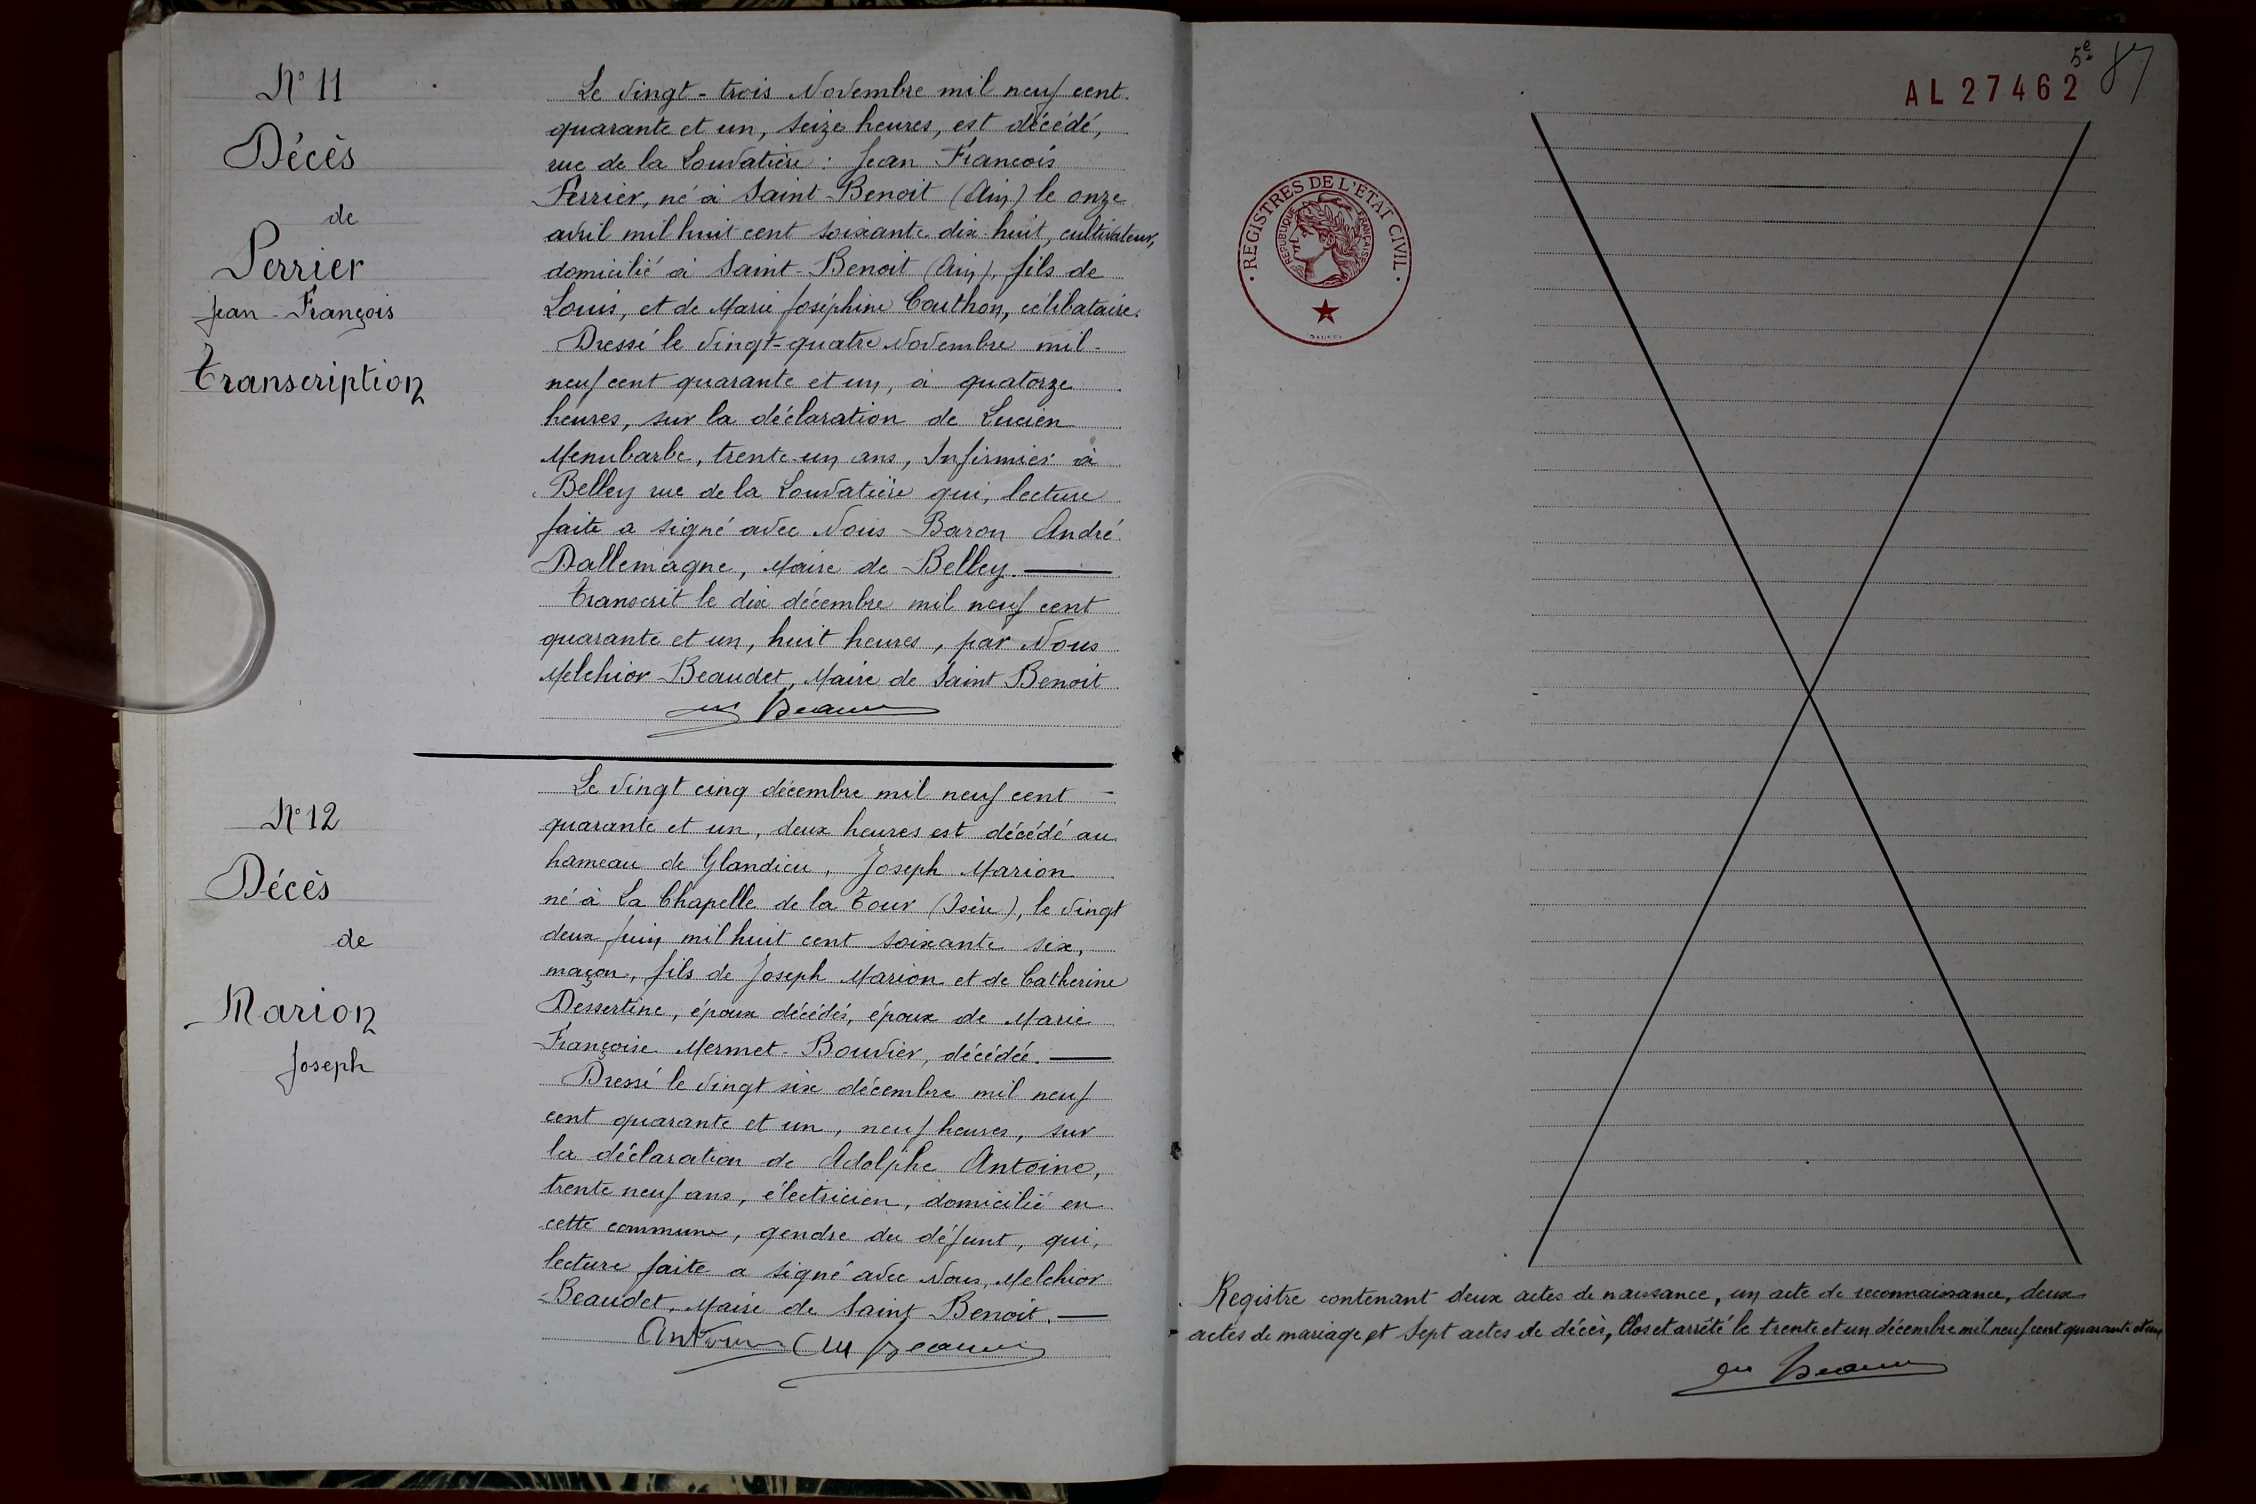 N° 11
Décès
de
Perrier
Jean-François
Transcription
Le vingt-trois Novembre mil neuf cent
quarante et un, seize heures, est décédé,
rue de la Louvatière : Jean François
Perrier, né à Saint-Benoit (Ain) le onze
avril mil huit cent soixante dix-huit, cultivateur,
domicilié à Saint-Benoit (Ain), fils de
Louis, et de Marie Joséphine Couthon, célibataire.
Dressé le vingt-quatre Novembre mil-
neuf cent quarante et un, à quatorze
heures, sur la déclaration de Lucien
Menubarbe, trente-un ans, Infirmier à
Belley rue de la Louvatière qui, lecture
faite a signé avec Nous Baron André
Dallemagne, Maire de Belley.
Transcrit le dix décembre mil neuf cent
quarante et un, huit heures, par Nous
Melchior Beaudet, Maire de Saint Benoit
N° 12
Décès
de
Marion
Joseph
Le vingt cinq décembre mil neuf cent -
quarante et un, deux heures est décédé au
hameau de Glandieu, Joseph Marion
né à La Chapelle de la Tour (Isère), le vingt
deux juin mil huit cent soixante six,
maçon, fils de Joseph Marion et de Catherine
Dessertine, époux décédés, époux de Marie
Françoise Mermet-Bouvier, décédée.
Dressé le vingt six décembre mil neuf
cent quarante et un, neuf heures, sur
la déclaration de Adolphe Antoine,
trente neuf ans, électricien, domicilié en
cette commune, gendre du défunt, qui,
lecture faite a signé avec Nous, Melchior
Beaudet, Maire de Saint Benoit.
5e
87
AL 27462
REGISTRES DE L'ETAT CIVIL
REPUBLIQUE FRANÇAISE
Registre contenant deux actes de naissance, un acte de reconnaissance, deux
actes de mariage et Sept actes de décès, Clos et arrêté le trente et un décembre mil neuf cent quarante et un